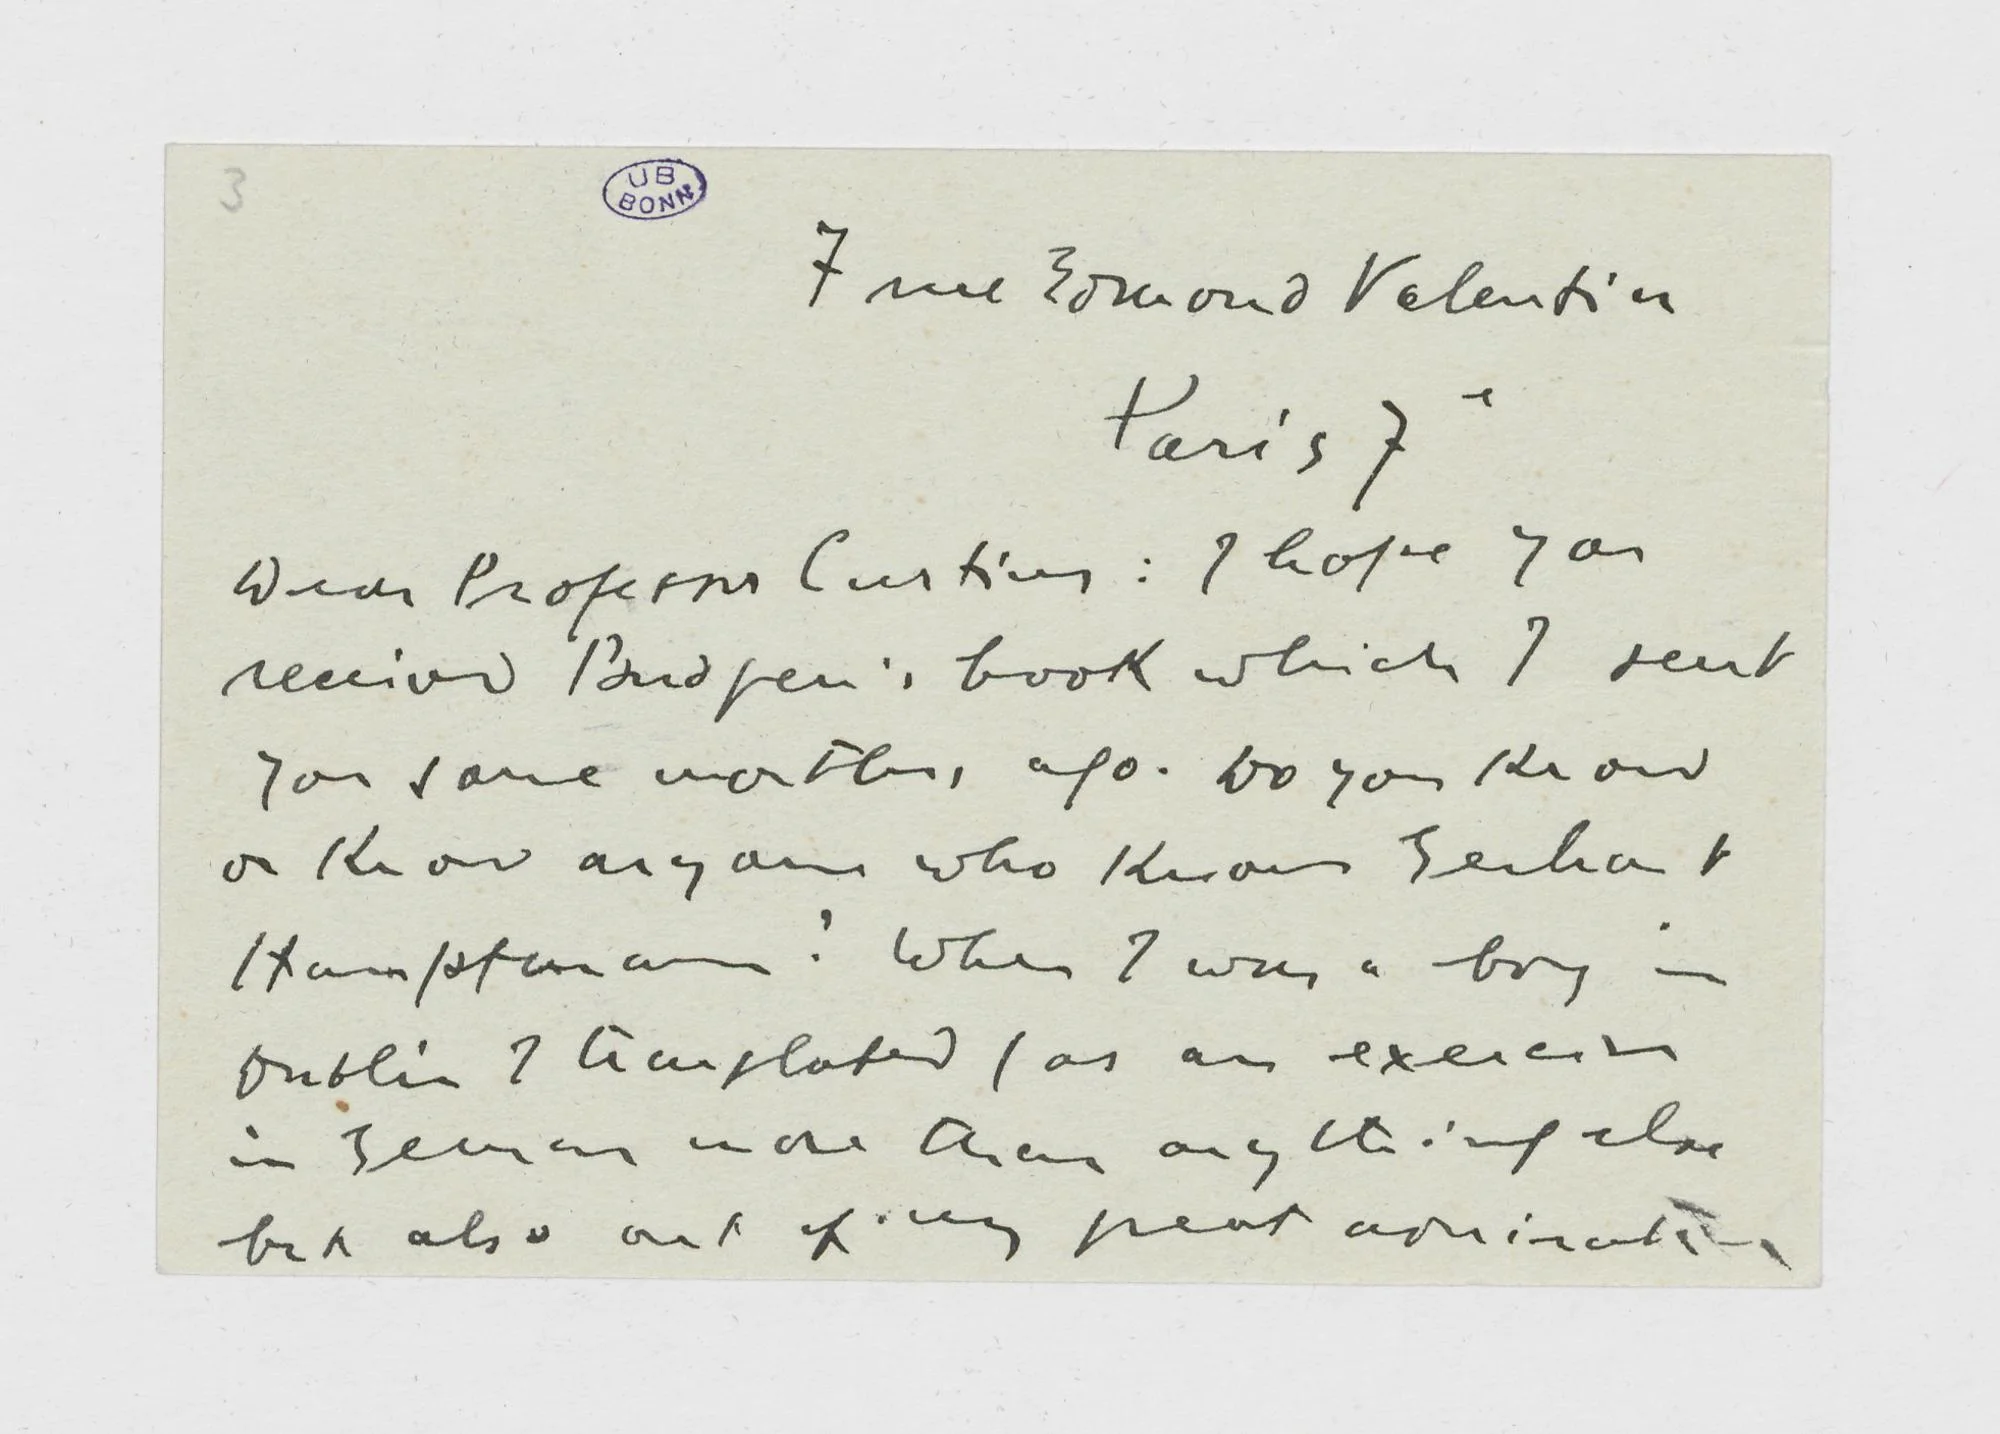 3
UB
BONN
7 rue Edmond Valentin
Paris 7e
Dear Professor Curtius: I hope you
received Budgen's book which I sent
you some months ago. Do you know
or know anyone who knows Gerhart
Hauptmann? When I was a boy in
Dublin I translated (as an exercise
in German more than anything else
but also out of my great admiration